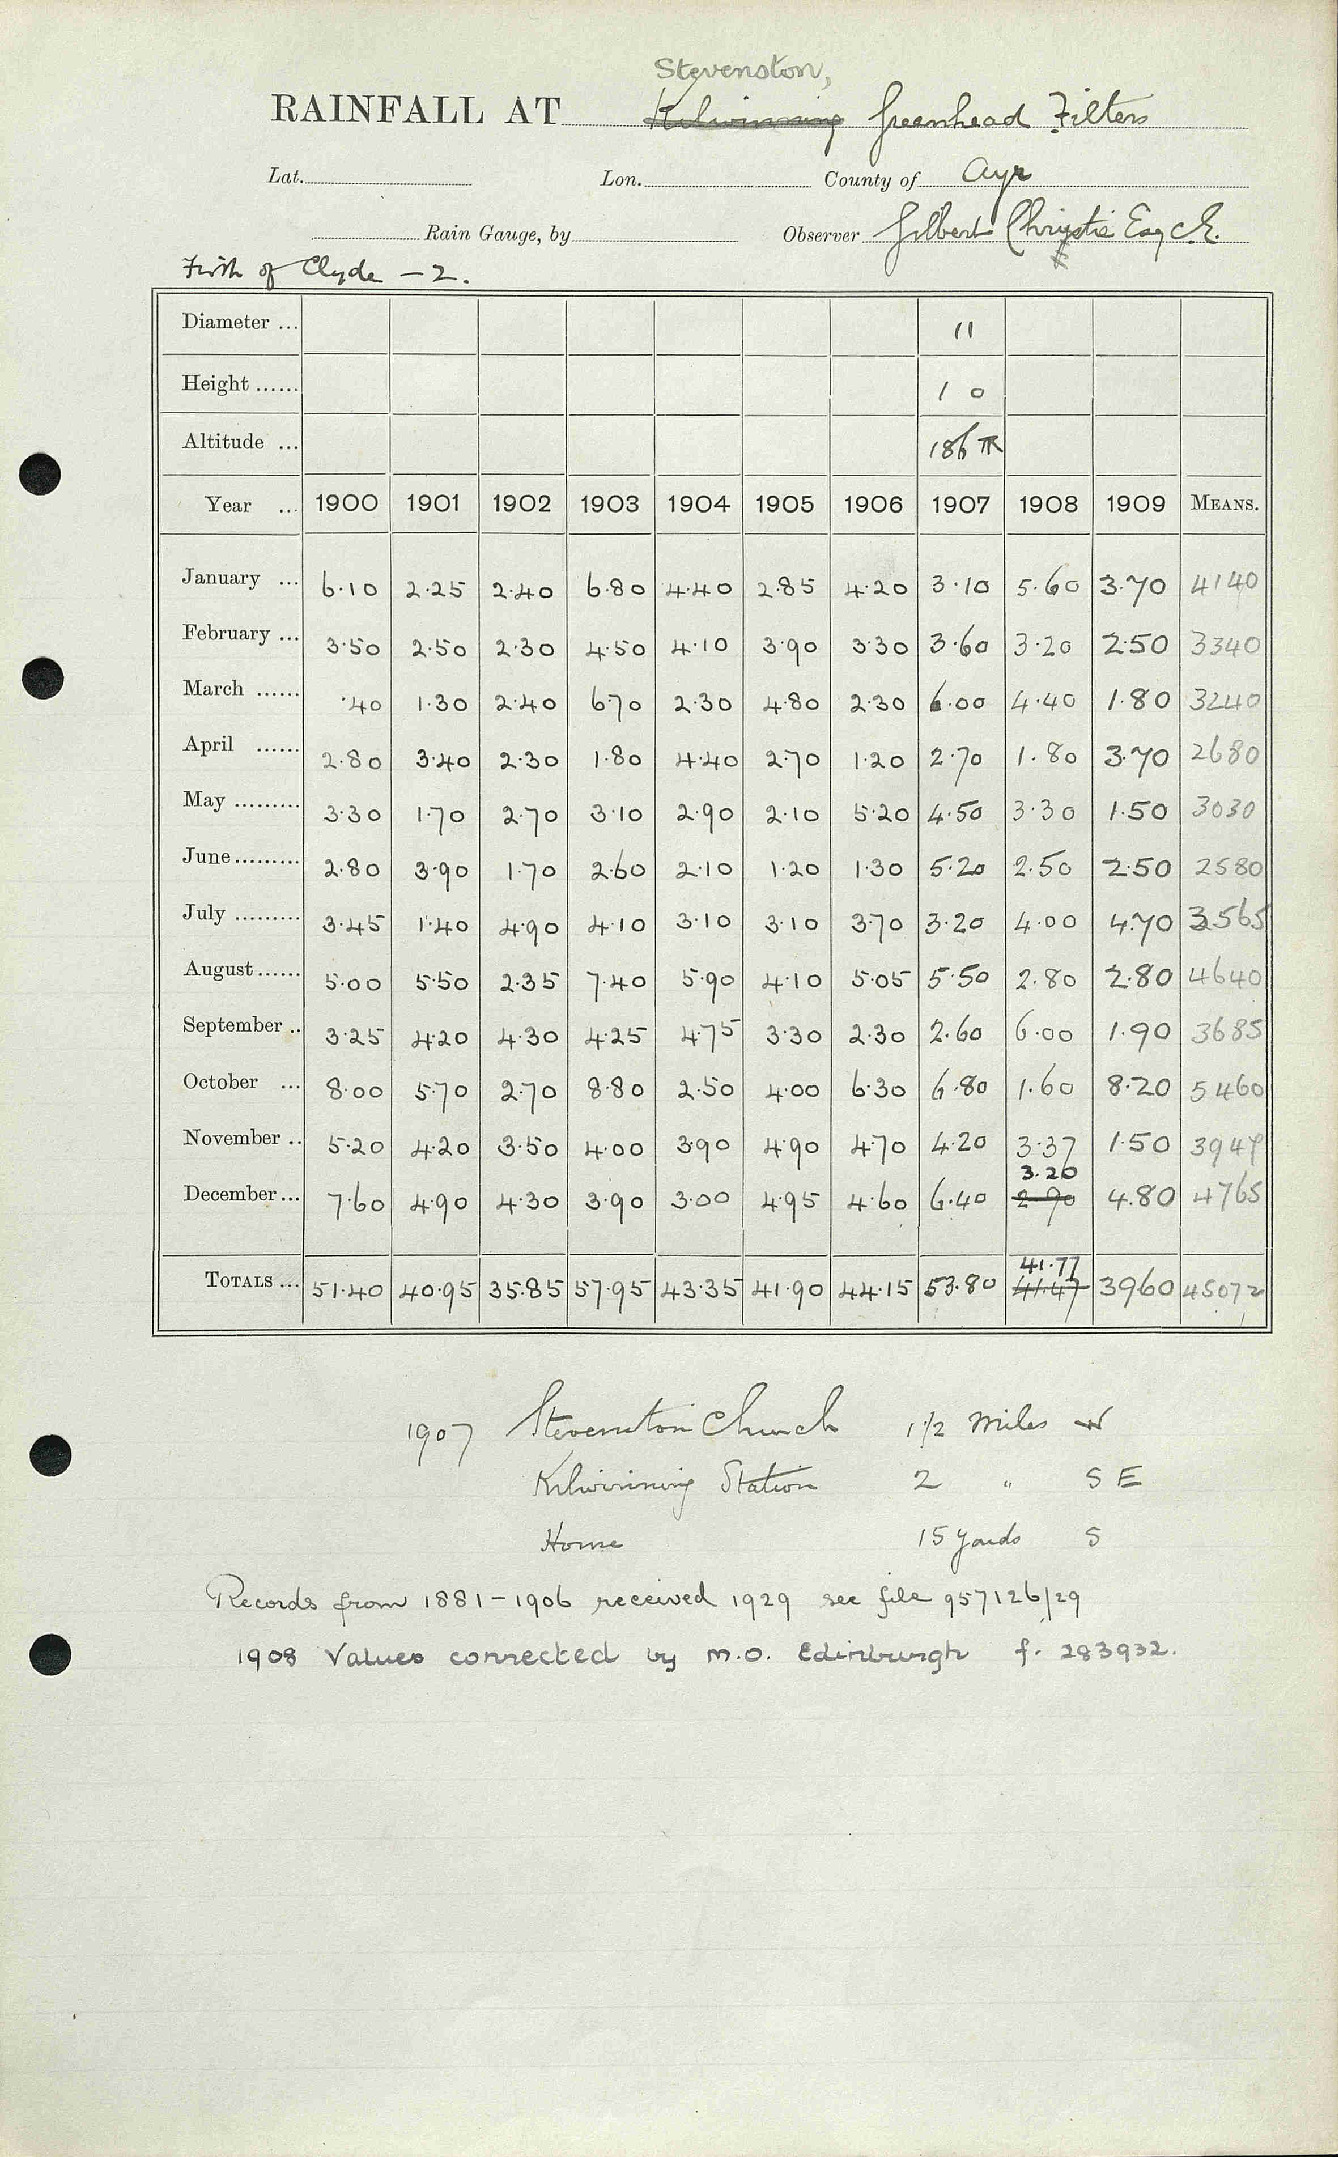 Stevenston,
RAINFALL AT Kilwinning Greenhead Filters
Lat. Lon. County of Ayr
Rain Gauge, by Observer Gilbert Christie Esq C.E.
Firth of Clyde - 2.
Diameter ... 11
Height ...... 1 0
Altitude ... 186
Year ... 1900 1901 1902 1903 1904 1905 1906 1907 1908 1909 MEANS.
January ... 6.10 2.25 2.40 6.80 4.40 2.85 4.20 3.10 5.60 3.70 4140
February ... 3.50 2.50 2.30 4.50 4.10 3.90 3.30 3.60 3.20 2.50 3340
March ...... .40 1.30 2.40 6.70 2.30 4.80 2.30 6.00 4.40 1.80 3240
April ...... 2.80 3.40 2.30 1.80 4.40 2.70 1.20 2.70 1.80 3.70 2680
May ......... 3.30 1.70 2.70 3.10 2.90 2.10 5.20 4.50 3.30 1.50 3030
June ......... 2.80 3.90 1.70 2.60 2.10 1.20 1.30 5.20 2.50 2.50 2580
July ......... 3.45 1.40 4.90 4.10 3.10 3.10 3.70 3.20 4.00 4.70 3565
August ...... 5.00 5.50 2.35 7.40 5.90 4.10 5.05 5.50 2.80 2.80 4640
September .. 3.25 4.20 4.30 4.25 4.75 3.30 2.30 2.60 6.00 1.90 3685
October ... 8.00 5.70 2.70 8.80 2.50 4.00 6.30 6.80 1.60 8.20 5460
November .. 5.20 4.20 3.50 4.00 3.90 4.90 4.70 4.20 3.37 1.50 3947
3.20
December ... 7.60 4.90 4.30 3.90 3.00 4.95 4.60 6.40 2.90 4.80 4765
41.77
TOTALS ... 51.40 40.95 35.85 57.95 43.35 41.90 44.15 53.80 41.47 39.60 45072
1907 Stevenston Church 1 1/2 Miles W
Kilwinning Station 2 " S E
Home 15 yards S
Records from 1881-1906 received 1929 see file 957126/29
1908 Values corrected by M.O. Edinburgh f. 283932.